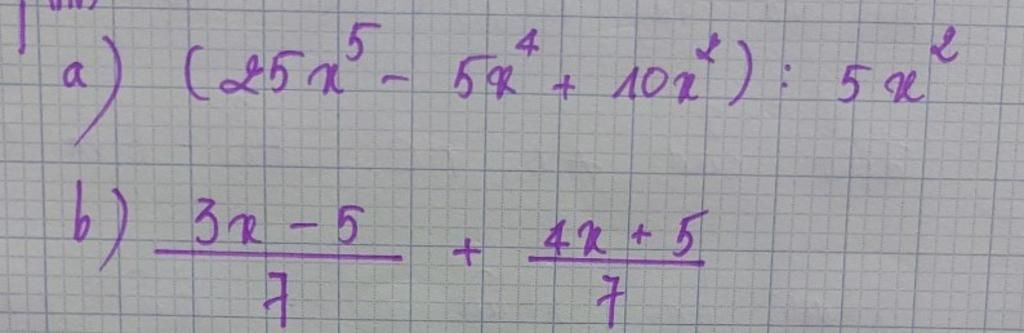 a) (25x⁵ - 5x⁴ + 10x²) : 5x²
b) (3x - 5)/7 + (4x + 5)/7